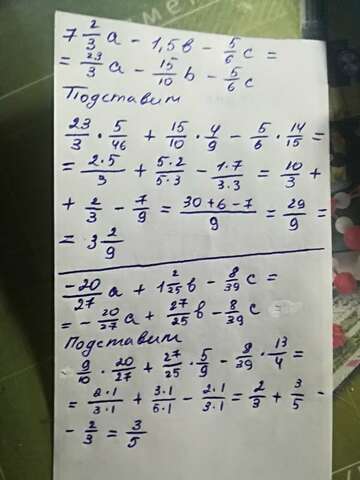 7 2/3 a - 1,5b - 5/6 c =
= 23/3 a - 15/10 b - 5/6 c
Подставим
23/3 · 5/46 + 15/10 · 4/9 - 5/6 · 14/15 =
= 2·5/3 + 5·2/5·3 - 1·7/3·3 = 10/3 +
+ 2/3 - 7/9 = 30+6-7/9 = 29/9 =
= 3 2/9
-20/27 a + 1 2/25 b - 8/39 c =
= - 20/27 a + 27/25 b - 8/39 c =
Подставим
9/10 · 20/27 + 27/25 · 5/9 - 8/39 · 13/4 =
= 2·1/3·1 + 3·1/5·1 - 2·1/3·1 = 2/3 + 3/5 -
- 2/3 = 3/5